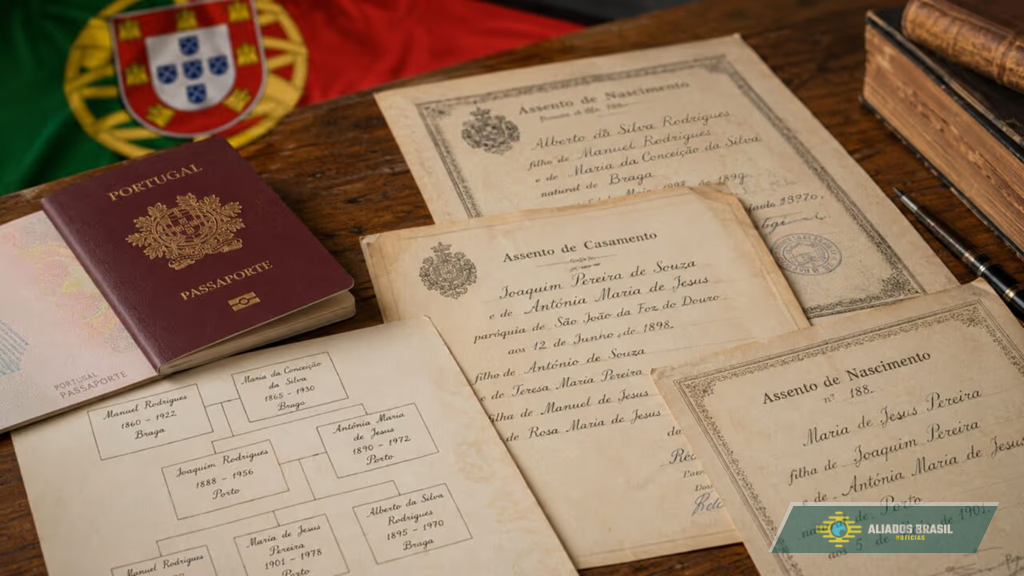 PORTUGAL
PASSAPORTE
PORTUGAL
PASSAPORTE
Assento de Nascimento
Alberto da Silva Rodrigues
filho de Manuel Rodrigues
e de Maria da Conceição da Silva
natural de Braga
Assento de Casamento
Joaquim Pereira de Souza
e de Antónia Maria de Jesus
paróquia de São João da Foz do Douro
aos 12 de Junho de 1898.
filho de António de Souza
e de Teresa Maria Pereira
filha de Manuel de Jesus
e de Rosa Maria de Jesus
Assento de Nascimento
nº 188.
Maria de Jesus Pereira
filha de Joaquim Pereira
e de Antónia Maria de Jesus
Porto
aos 5 de 1901.
Manuel Rodrigues
1860 - 1922
Braga
Maria da Conceição
da Silva
1865 - 1930
Braga
Joaquim Rodrigues
1888 - 1956
Porto
Antónia Maria
de Jesus
1890 - 1972
Porto
Manuel Rodrigues
Maria de Jesus
Pereira
1901 - 1978
Porto
Alberto da Silva
Rodrigues
1895 - 1970
Braga
ALIADOS BRASIL
NOTÍCIAS